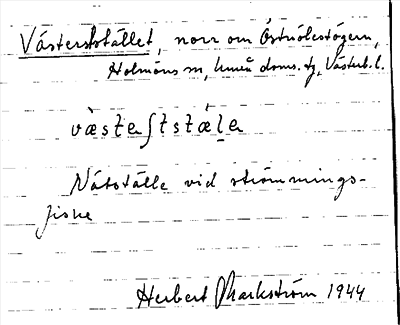 Västerstställlet, norr om Östnölestögern,
Holmöns sn, Umeå doms. tg, Västerb. l.
væste∫tstæ̀la
Nätställe vid strömmings-
fiske
Herbert Markström 1944